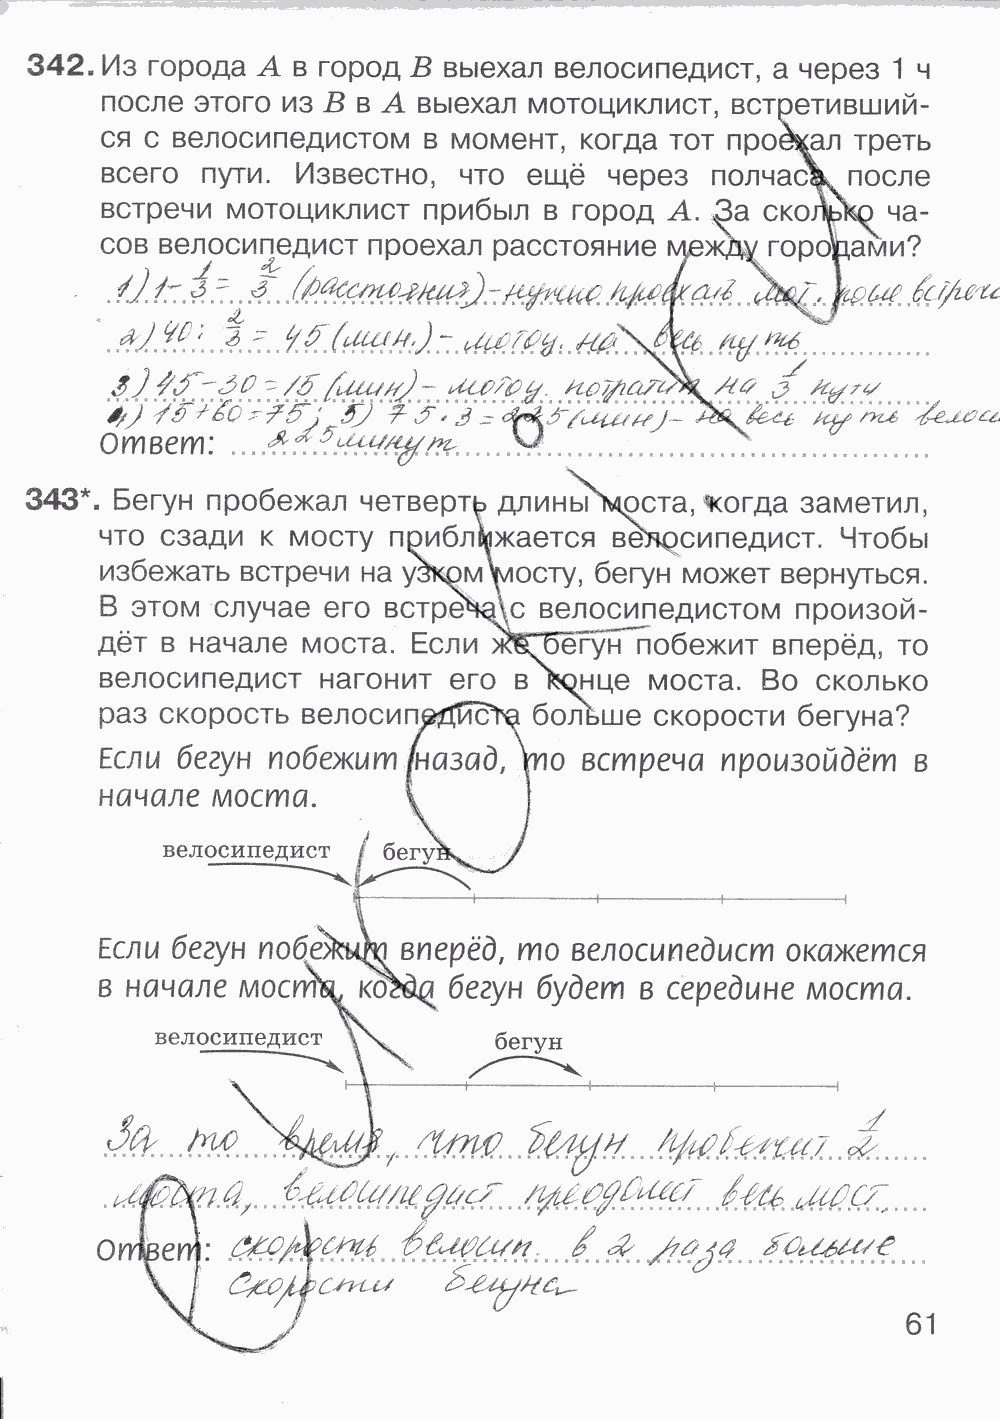 342. Из города A в город B выехал велосипедист, а через 1 ч
после этого из B в A выехал мотоциклист, встретивший-
ся с велосипедистом в момент, когда тот проехал треть
всего пути. Известно, что ещё через полчаса после
встречи мотоциклист прибыл в город A. За сколько ча-
сов велосипедист проехал расстояние между городами?
1) 1 - 1/3 = 2/3 (расстояния) - нужно проехать мот. после встречи
2) 40 : 2/3 = 45 (мин.) - мотоц. на весь путь
3) 45 - 30 = 15 (мин) - мотоц. потратил на 1/3 пути
4) 15 + 60 = 75; 5) 75 · 3 = 225 (мин) - на весь путь велоси
Ответ: 225 минут
343*. Бегун пробежал четверть длины моста, когда заметил,
что сзади к мосту приближается велосипедист. Чтобы
избежать встречи на узком мосту, бегун может вернуться.
В этом случае его встреча с велосипедистом произой-
дёт в начале моста. Если же бегун побежит вперёд, то
велосипедист нагонит его в конце моста. Во сколько
раз скорость велосипедиста больше скорости бегуна?
Если бегун побежит назад, то встреча произойдёт в
начале моста.
велосипедист бегун
Если бегун побежит вперёд, то велосипедист окажется
в начале моста, когда бегун будет в середине моста.
велосипедист бегун
За то время, что бегун пробежит 1/2
моста, велосипедист преодолеет весь мост.
Ответ: скорость велосип. в 2 раза больше
скорости бегуна
61